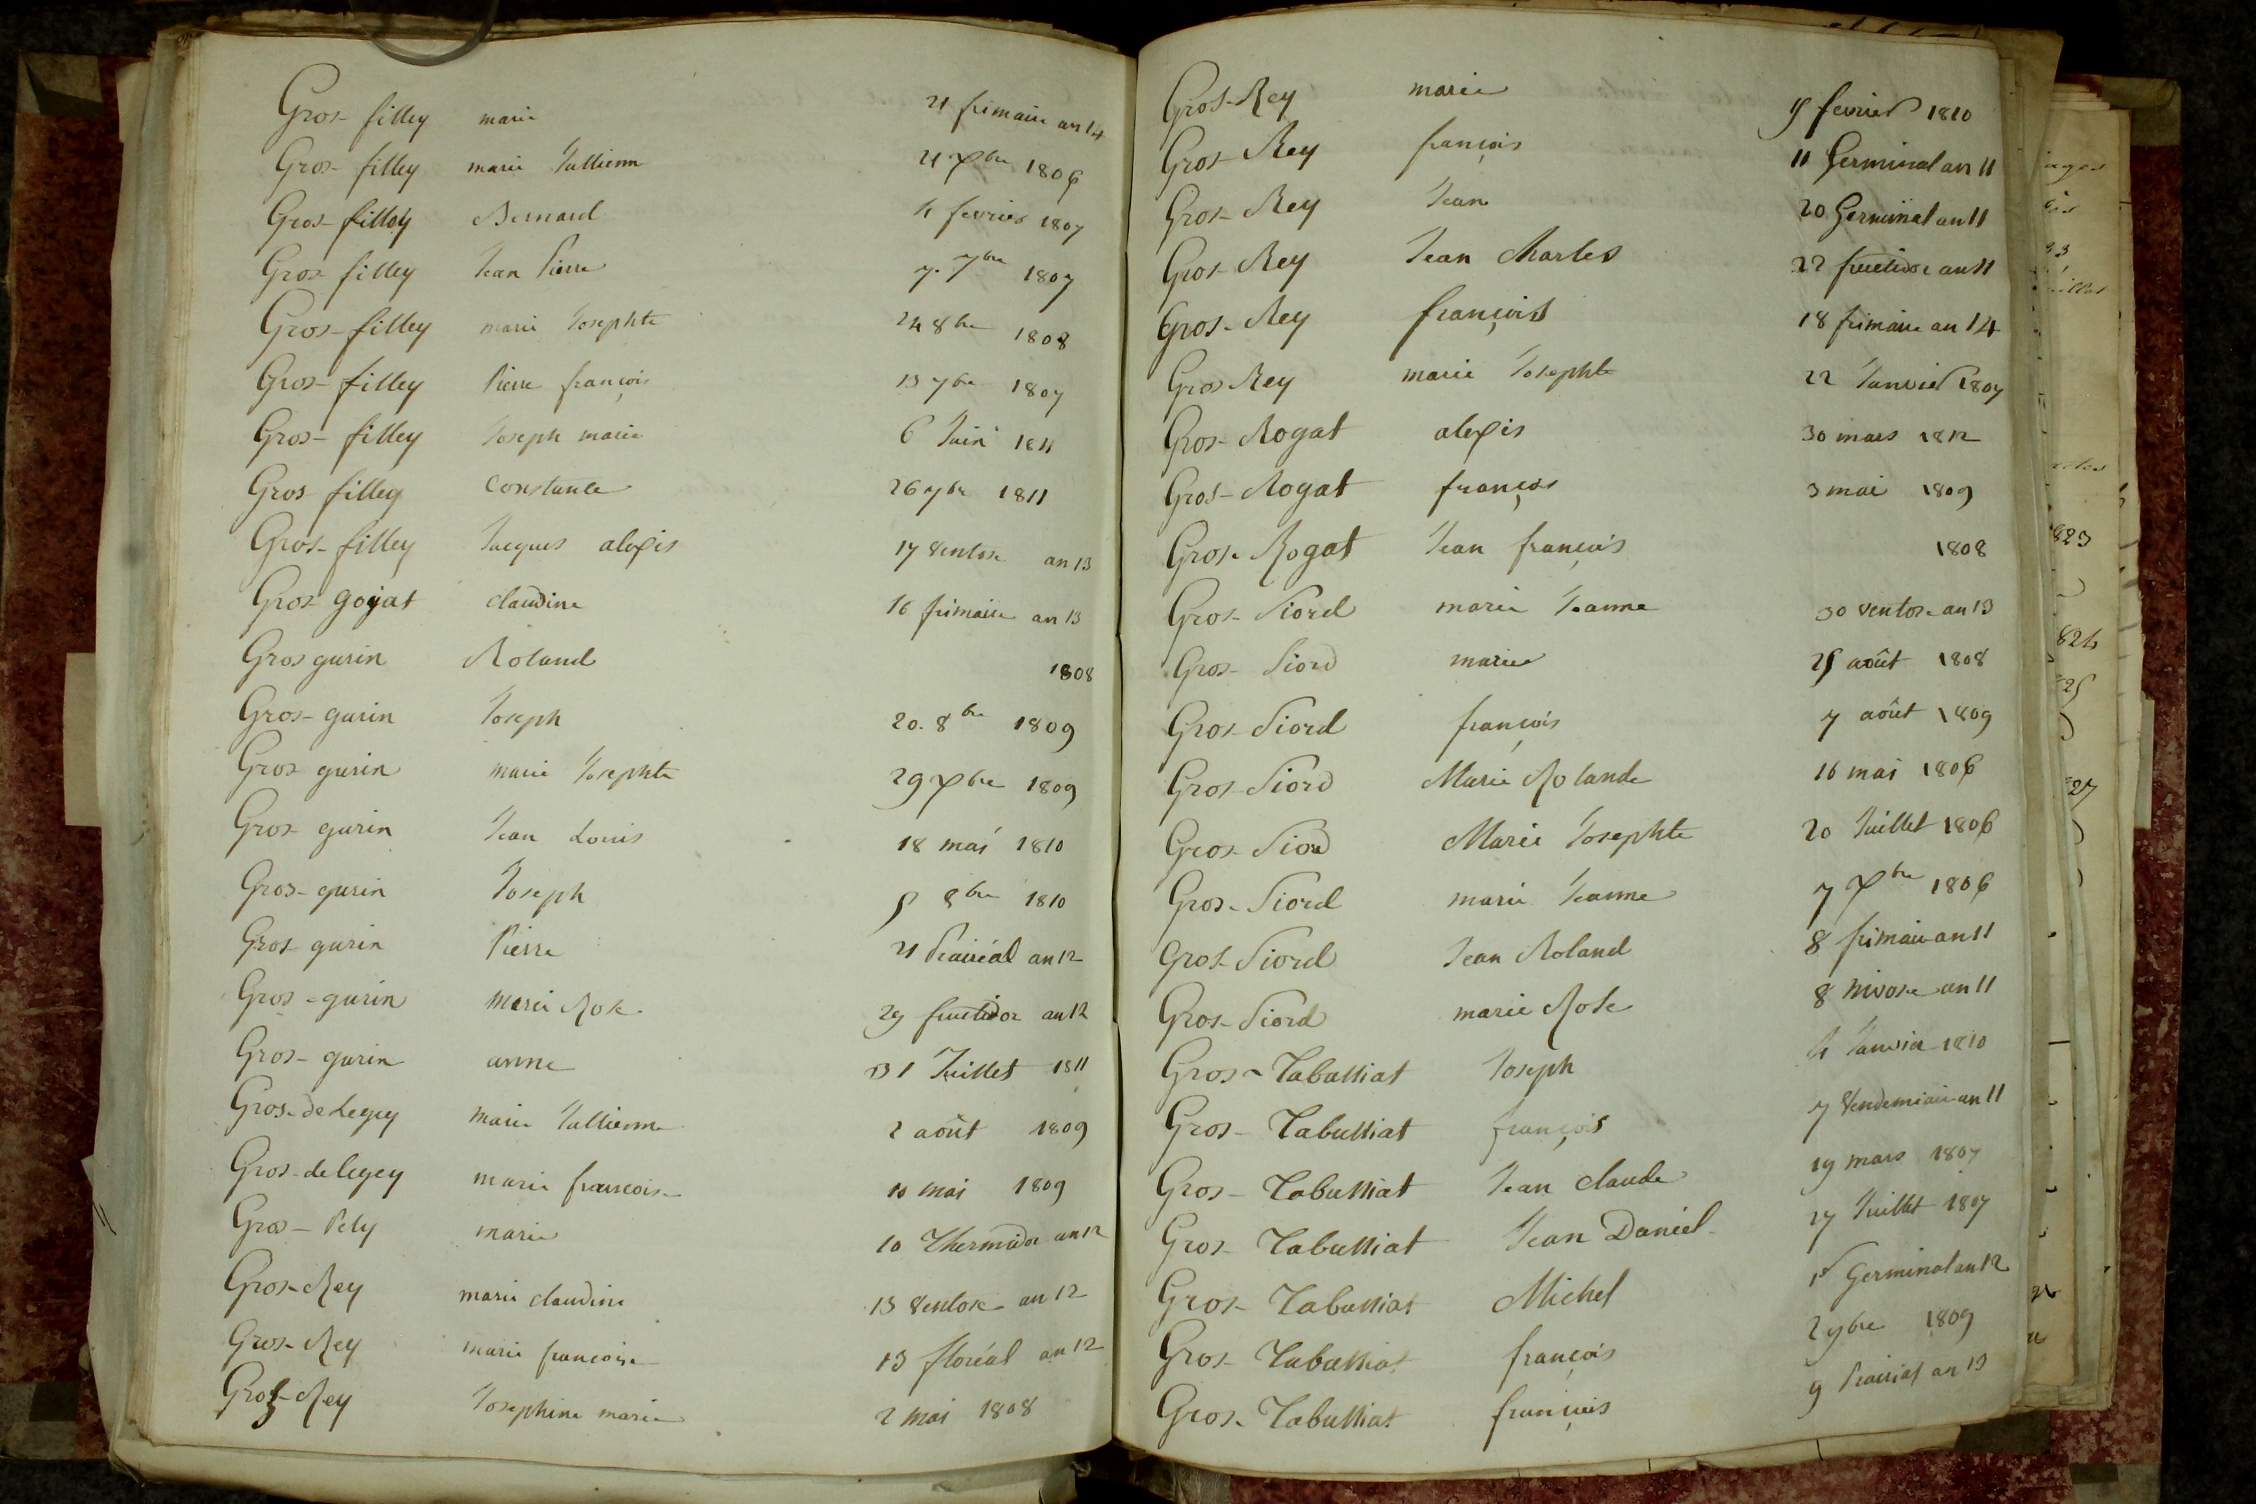 Gros-filley marie 21 frimaire an 14
Gros-filley marie Jullienne 21 Xbre 1806
Gros-filley Bernard 4 fevrier 1807
Gros filley Jean Pierre 7. 7bre 1807
Gros-filley marie Josephte 24 8bre 1808
Gros-filley Pierre françois 13 7bre 1807
Gros-filley Joseph marie 6 Juin 1811
Gros filley Constance 26 7bre 1811
Gros-filley Jacques alexis 17 Ventose an 13
Gros gojat claudine 16 frimaire an 13
Gros gurin Roland 1808
Gros-gurin Joseph 20. 8bre 1809
Gros gurin marie Josephte 29 Xbre 1809
Gros gurin Jean Louis 18 mai 1810
Gros-gurin Joseph 5 8bre 1810
Gros gurin Pierre 21 Prairéal an 12
Gros-gurin marie Rose 29 fructidor an 12
Gros-gurin anne 31 Juillet 1811
Gros-deLegey marie Jullienne 2 août 1809
Gros-delegey marie francoise 10 mai 1809
Gros-Pely marie 10 Thermidor an 12
Gros-Rey marie claudine 13 Ventose an 12
Gros-Rey marie francoise 13 floréal an 12
Gros-Rey Josephine marie 2 mai 1808
Gros-Rey marie fevrier 1810
Gros-Rey françois 11 Germinal an 11
Gros-Rey Jean 20 Germinal an 11
Gros-Rey Jean Charles 22 fructidor an 11
Gros-Rey françois 18 frimaire an 14
Gros Rey marie Josephte 22 Janvier 1807
Gros-Rogat alexis 30 mars 1812
Gros-Rogat françois 3 mai 1809
Gros-Rogat Jean françois 1808
Gros-Piord marie Jeanne 30 ventose an 13
Gros-Piord marie 25 août 1808
Gros-Piord françois 7 août 1809
Gros-Piord Marie Rolande 16 mai 1806
Gros-Piord Marie Josephte 20 Juillet 1806
Gros-Piord marie Jeanne 7 Xbre 1806
Gros-Piord Jean Roland 8 frimaire an 11
Gros-Piord marie Rose 8 Nivose an 11
Gros-Tabussiat Joseph 4 Janvier 1810
Gros-Tabussiat françois 7 Vendemiaire an 11
Gros-Tabussiat Jean claude 19 mars 1807
Gros-Tabussiat Jean Daniel 17 Juillet 1807
Gros-Tabussiat Michel 1er Germinal an 12
Gros-Tabussiat françois 2 9bre 1809
Gros-Tabussiat françois 9 Prairial an 13